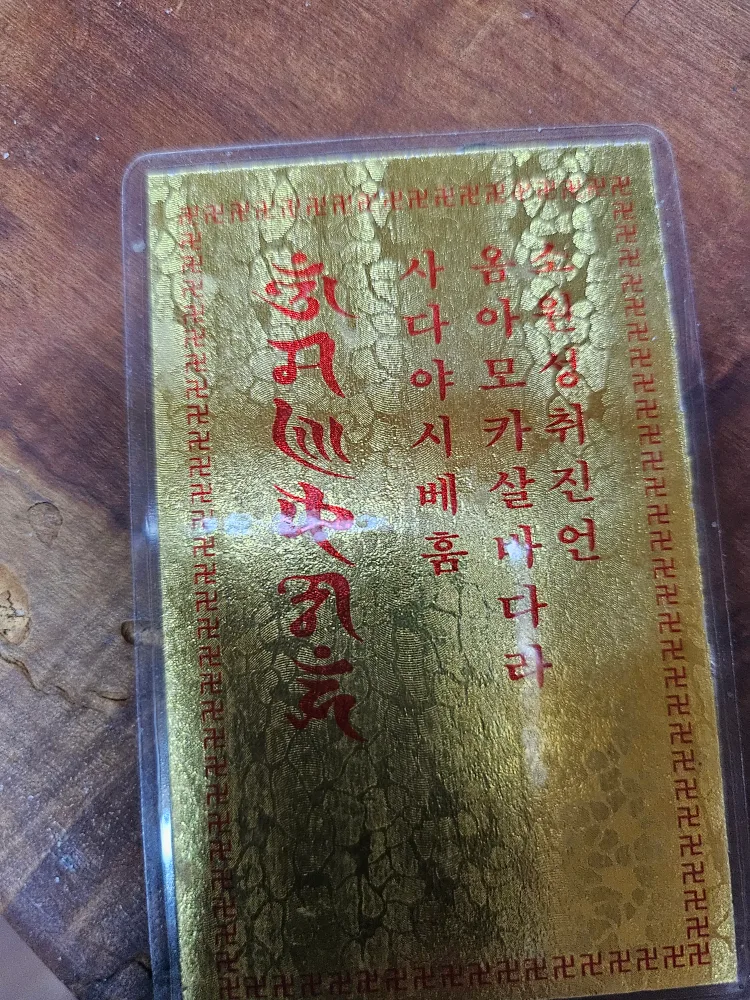 소원성취진언
옴아모카살바다라
사다야시베훔